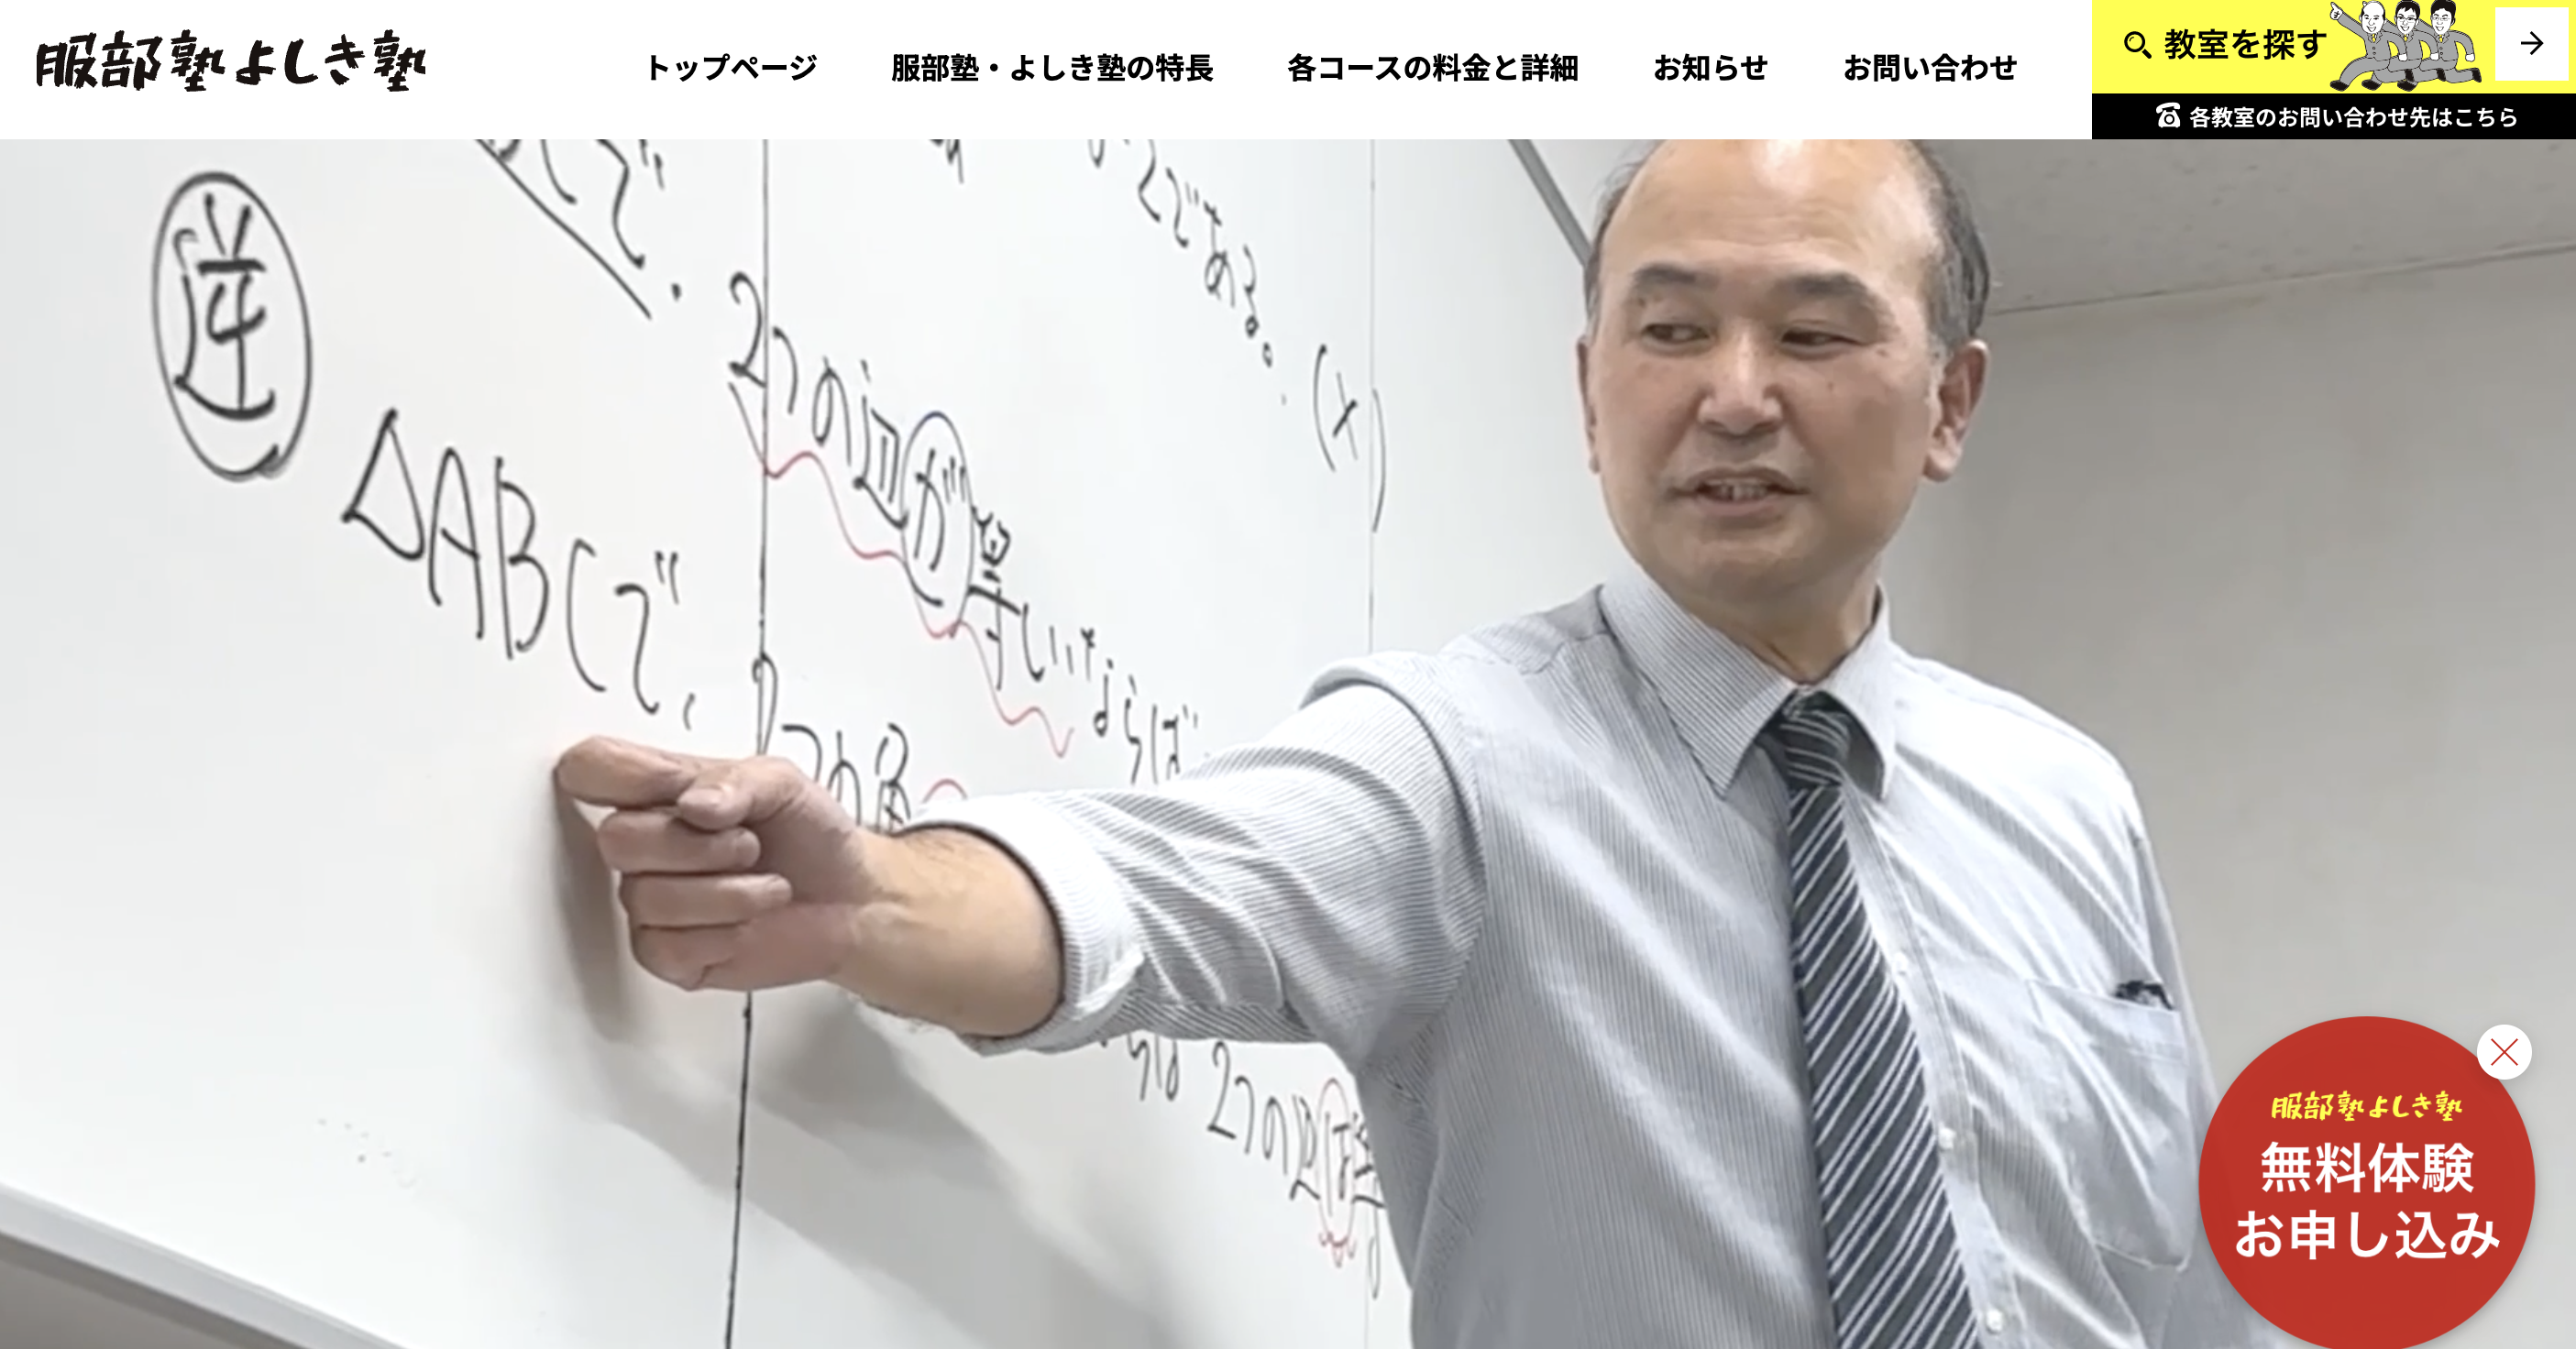 服部塾よしき塾
トップページ
服部塾・よしき塾の特長
各コースの料金と詳細
お知らせ
お問い合わせ
教室を探す
各教室のお問い合わせ先はこちら
Cで.
2である。(×)
逆
△ABCで、
2つの辺が等しいならば
2つの角
らば 2つの辺は
服部塾よしき塾
無料体験
お申し込み